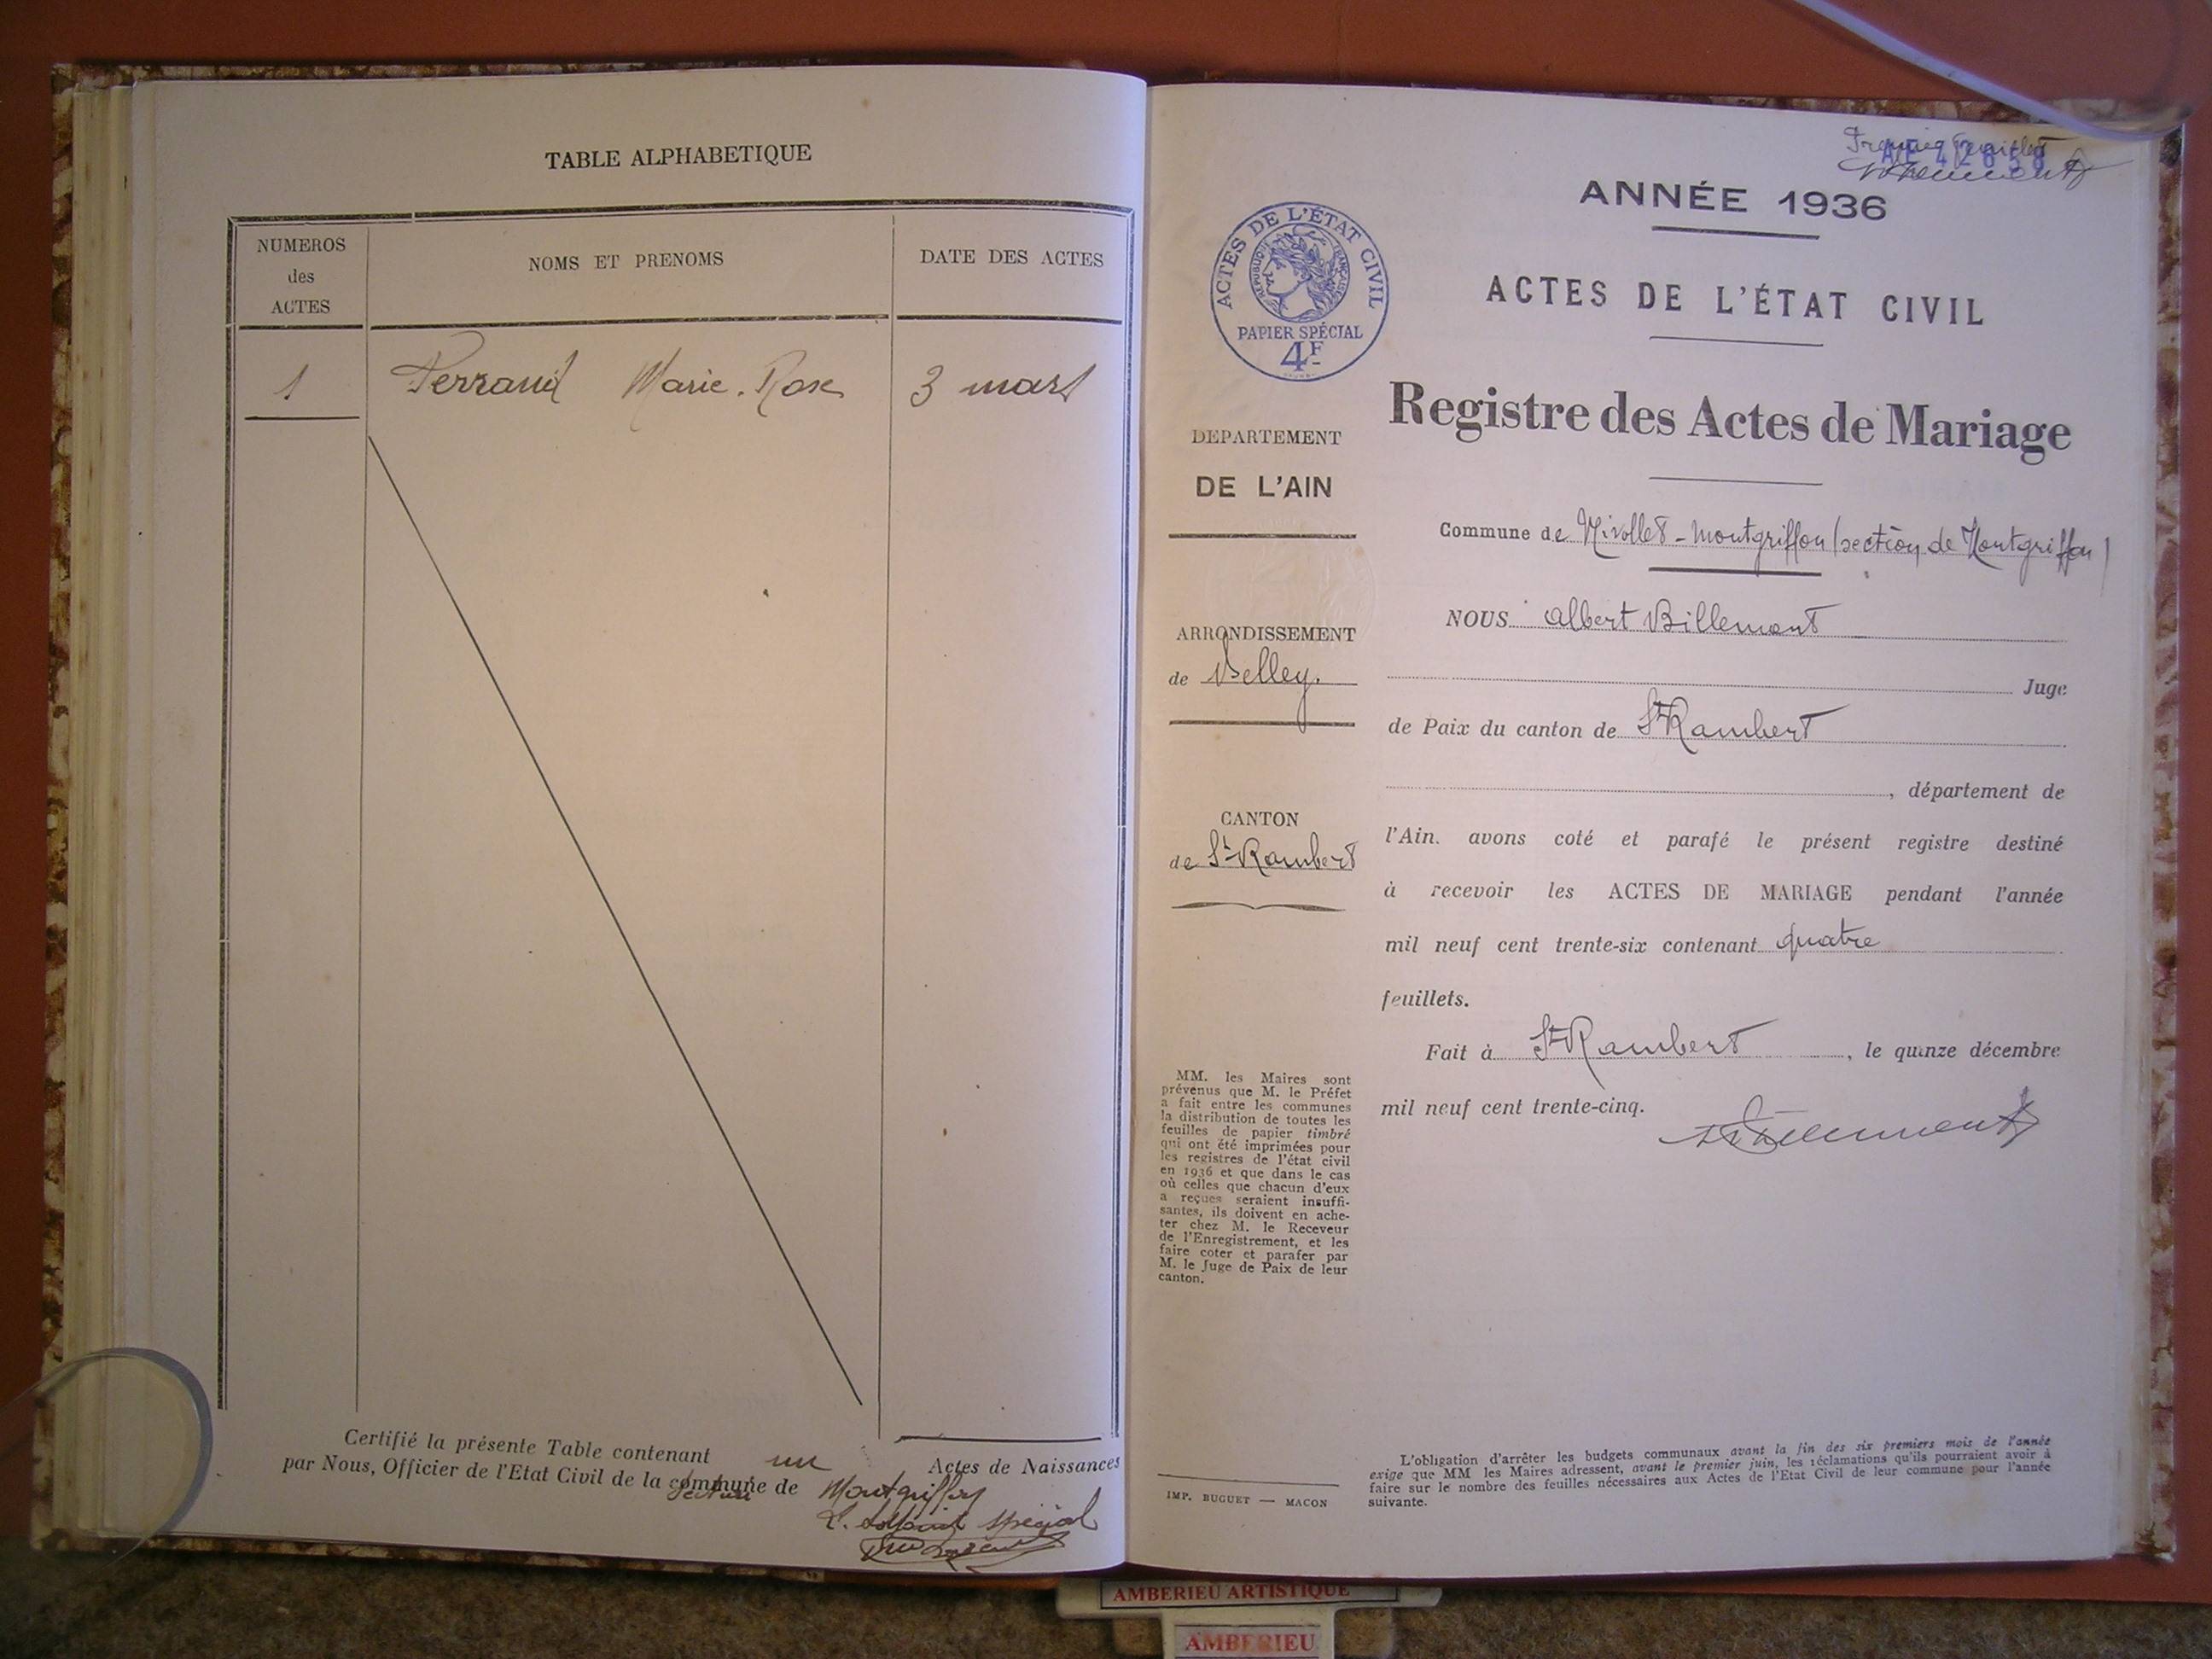 TABLE ALPHABETIQUE
NUMEROS
des
ACTES
NOMS ET PRENOMS
DATE DES ACTES
1 Perraud Marie-Rose 3 mars
Certifié la présente Table contenant un Actes de Naissances
par Nous, Officier de l'Etat Civil de la commune de Montgriffon
section
L'adjoint spécial
Premier feuillet
AE 42658
ANNÉE 1936
ACTES DE L'ÉTAT CIVIL
RÉPUBLIQUE FRANÇAISE
PAPIER SPÉCIAL
4F
ACTES DE L'ÉTAT CIVIL
Registre des Actes de Mariage
DEPARTEMENT
DE L'AIN
Commune de Nivollet-Montgriffon (section de Montgriffon)
NOUS Albert Billemont
ARRONDISSEMENT
de Belley.
Juge
de Paix du canton de St Rambert
, département de
CANTON
de St-Rambert
l'Ain. avons coté et parafé le présent registre destiné
à recevoir les ACTES DE MARIAGE pendant l'année
mil neuf cent trente-six contenant quatre
feuillets.
Fait à St Rambert, le quinze décembre
mil neuf cent trente-cinq.
Billemont
MM. les Maires sont
prévenus que M. le Préfet
a fait entre les communes
la distribution de toutes les
feuilles de papier timbré
qui ont été imprimées pour
les registres de l'état civil
en 1936 et que dans le cas
où celles que chacun d'eux
a reçues seraient insuffi-
santes, ils doivent en ache-
ter chez M. le Receveur
de l'Enregistrement, et les
faire coter et parafer par
M. le Juge de Paix de leur
canton.
IMP. BUGUET — MACON
L'obligation d'arrêter les budgets communaux avant la fin des six premiers mois de l'année
exige que MM les Maires adressent, avant le premier juin, les réclamations qu'ils pourraient avoir à
faire sur le nombre des feuilles nécessaires aux Actes de l'Etat Civil de leur commune pour l'année
suivante.
AMBERIEU ARTISTIQUE
AMBERIEU